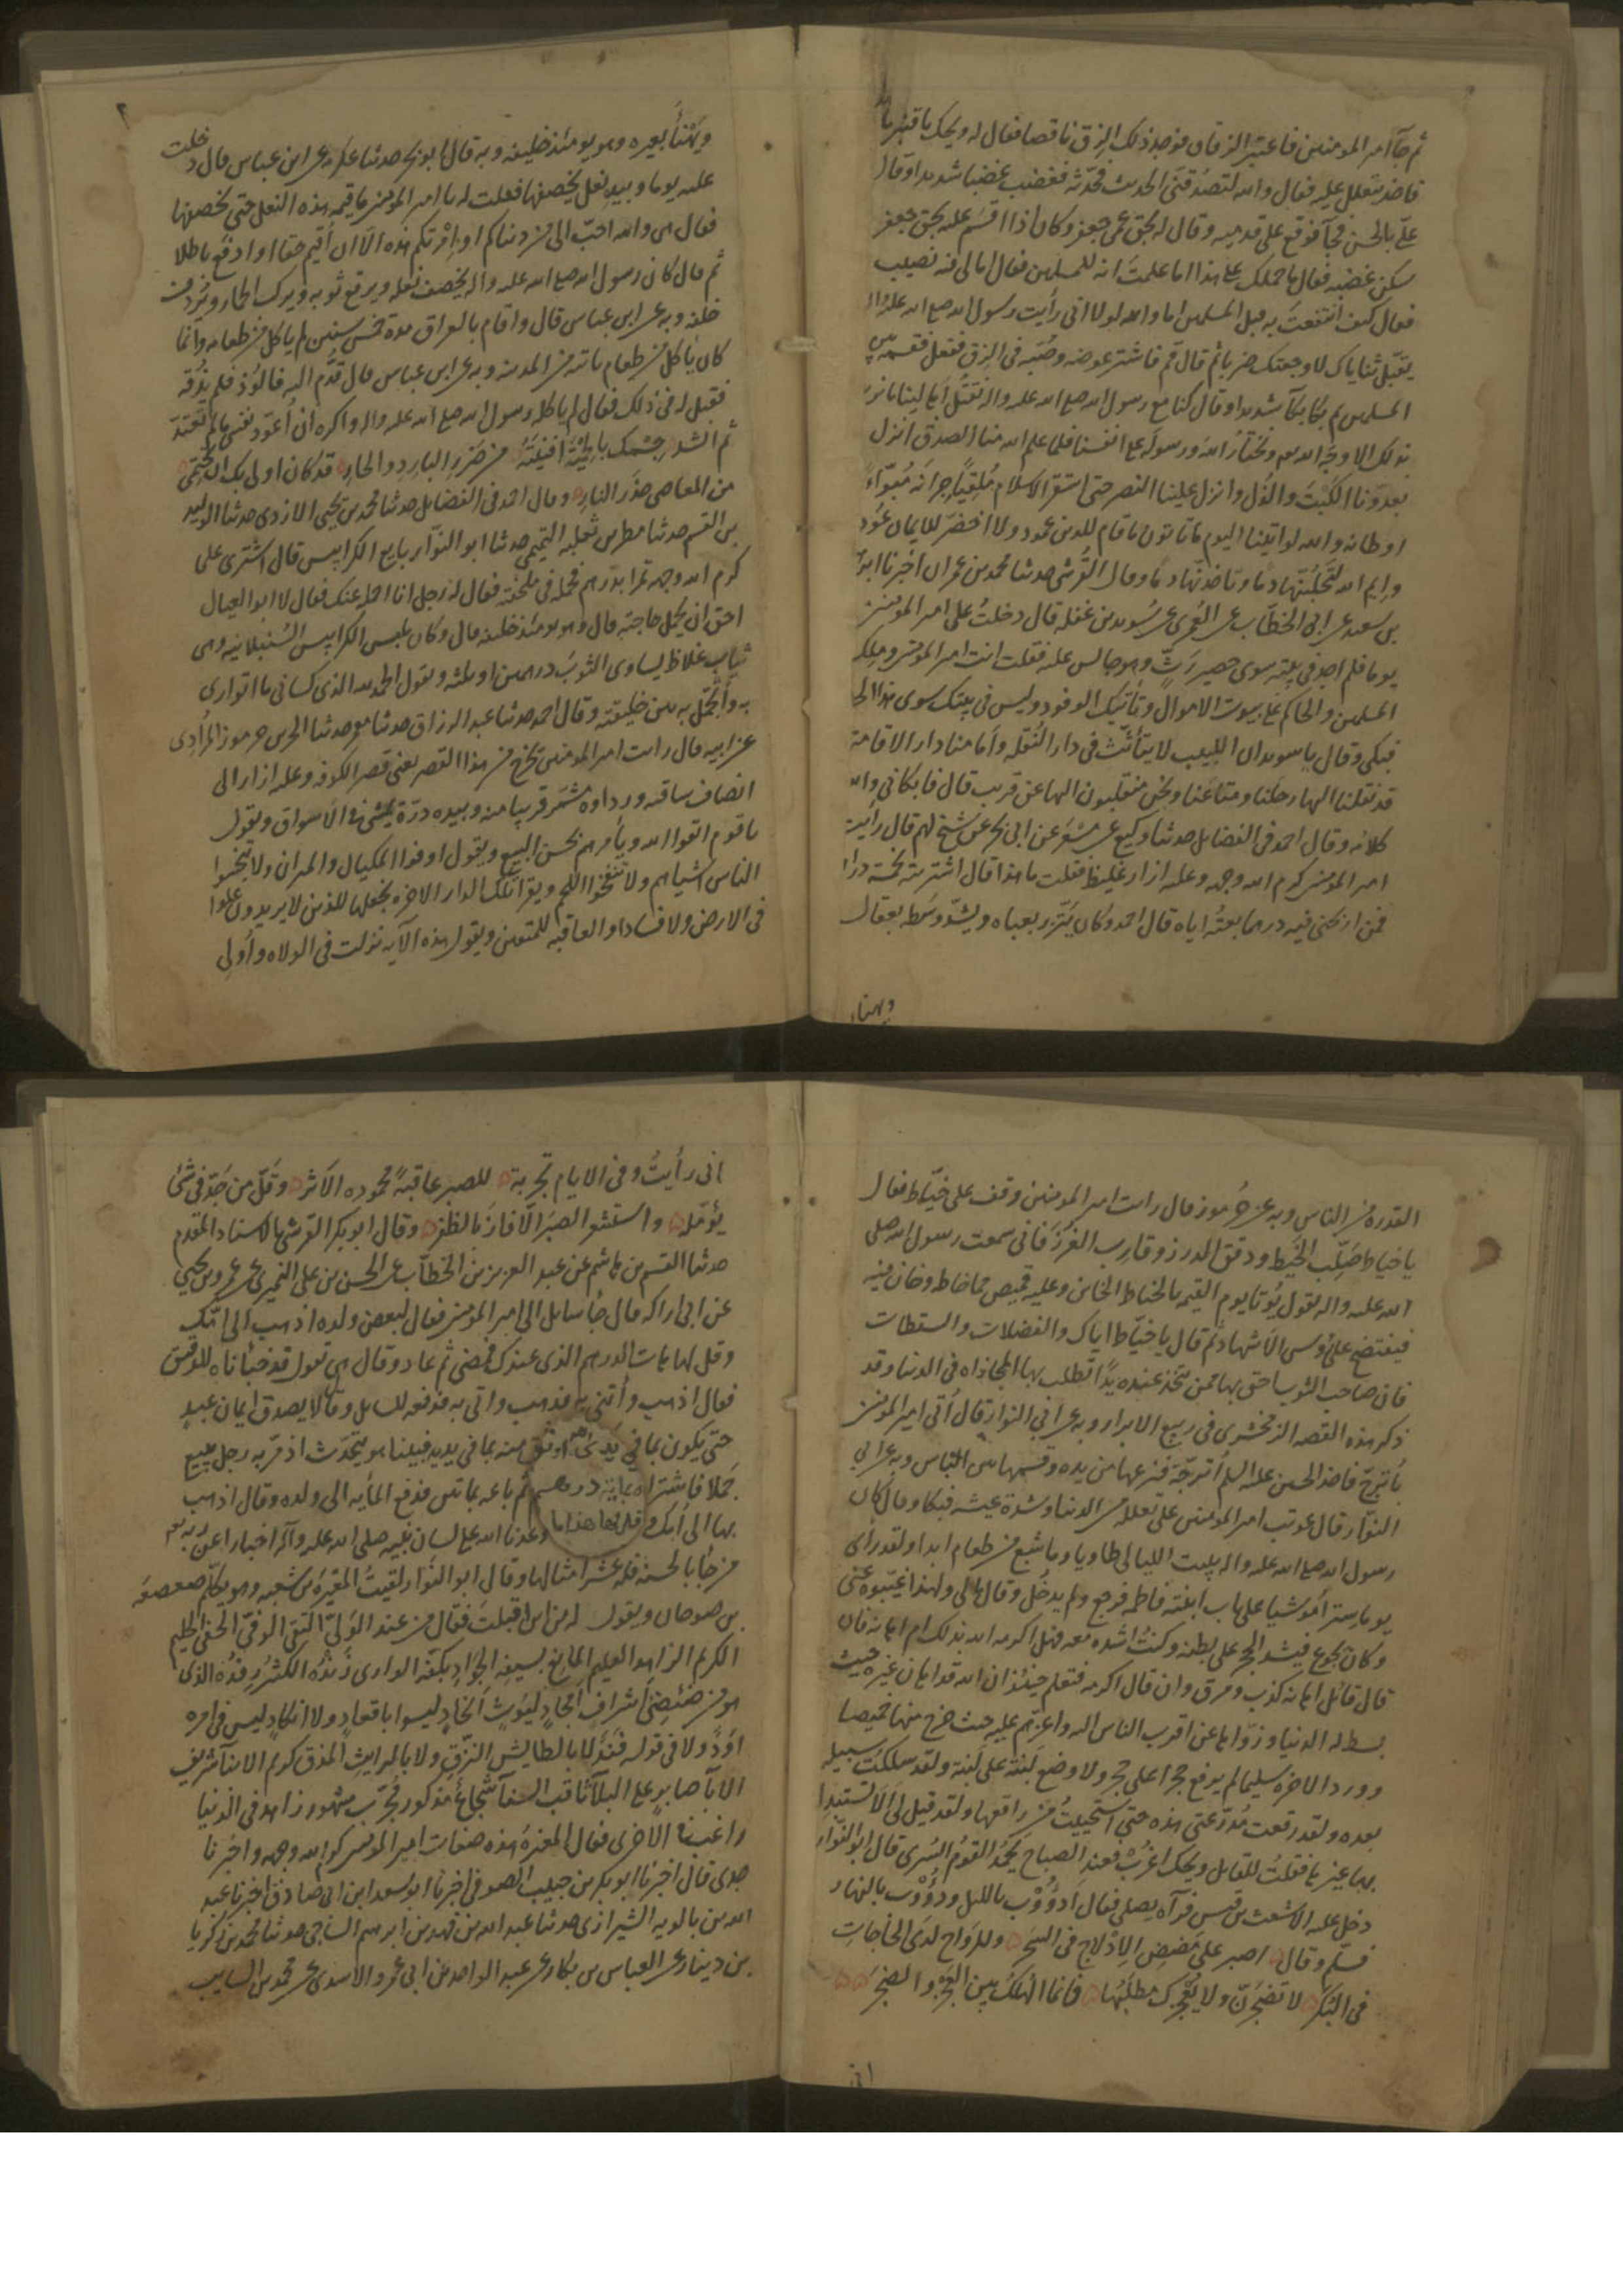 ثم جآ امير المومنين فاعتبر الزقاق فوجد ذلك الزق ناقصا فقال له ويحك يا قنبر ما
فاخذ يتعلل عليه فقال والله لتصدقني الحديث فحدثه فغضب غضبا شديدا وقال
علي بالحسن فجآ فوقع على قدميه وقال له بحق عمي جعفر وكان اذا اقسم عليه بحق جعفر
سكن غضبه فقال ما حملك على هذا اما علمت انه للمسلمين فقال اما لي فيه نصيب
فقال كيف انتفعت به قبل المسلمين اما والله لولا اني رأيت رسول الله صلى الله عليه واله
يقبل ثناياك لاوجعتك ضربا ثم قال قم فاشتر عوضه وصبه في الزق ففعل فقسمه بين
المسلمين ثم بكا بكآ شديدا وقال كنا مع رسول الله صلى الله عليه واله نقتل
بذلك الا وجه الله ونختار الله ورسوله على انفسنا فلما علم الله منا الصدق انزل
بعدونا الكبت والذل وانزل علينا النصر حتى استقر الاسلام ملقيا جرانه متبوأ
اوطانه والله لو اتينا اليوم ما تاتون ما قام للدين عمود ولا اخضر للايمان عود
وايم الله لتحلبنها دما وقال القرشي حدثنا محمد بن عمران اخبرنا
بن سعيد عن ابي الخطاب عن العمري عن سويد بن غفله قال دخلت على امير المومنين
يوما فلم اجد في بيته سوى حصير رث وهو جالس عليه فقلت انت امير المومنين وملك
المسلمين والحاكم على بيوت الاموال وتأتيك الوفود وليس في بيتك سوى هذا
فبكى وقال يا سويد ان اللبيب لا يتأثث في دار النقله وأمامنا دار الاقامة
قد نقلنا اليها رحلنا ومتاعنا ونحن منقلبون اليها عن قريب قال فابكاني والله
كلامه وقال احمد في الفضايل حدثنا وكيع عن مسعر عن ابي بحر عن شيخ لهم قال رأيت
امير المومنين كرم الله وجهه وعليه ازار غليظ فقلت ما هذا قال اشتريته بخمسة دراهم
فمن اربحني فيه درهما بعته اياه قال احمد وكان يتزر بعباه ويشد وسطه بعقال
ويهنأ
ويهنأ بعيره وهو يومئذ خليفه وبه قال ابو بحر حدثنا عكرمه عن ابن عباس قال دخلت
عليه يوما وبيده نعل يخصفها فقلت له يا امير المومنين ما قيمه هذه النعل حتى تخصفها
فقال هي والله احب الي من دنياكم او امرتكم هذه الا ان اقيم حقا او ادفع باطلا
ثم قال كان رسول الله صلى الله عليه واله يخصف نعله ويرقع ثوبه ويركب الحمار ويردف
خلفه وبه عن ابن عباس قال واقام بالعراق مدة خمس سنين لم ياكل من طعامه وانما
كان ياكل من طعام ياتيه من المدينه وبه عن ابن عباس قال قدم اليه فالوذ فلم يذقه
فقيل له في ذلك فقال لم ياكله رسول الله صلى الله عليه واله واكره ان اعود نفسي ما لم تعتد
ثم انشد جسمك بالحمية افنيته من ضرر البارد والحار قد كان اولى بك ان تحتمي
من المعاصي حذر النار وقال احمد في الفضايل حدثنا محمد بن يحيى الازدي حدثنا الوليد
بن القسم حدثنا مطر بن ثعلبه التميمي حدثنا ابو النوار بايع الكرابيس قال اشترى علي
كرم الله وجهه تمرا بدرهم فحمله في ملحفته فقال له رجل انا احمله عنك فقال لا ابو العيال
احق ان يحمل حاجته قال وهو يومئذ خليفه قال وكان يلبس الكرابيس السنبلانيه وهي
ثياب غلاظ يساوي الثوب درهمين او ثلثه ويقول الحمد لله الذي كساني ما اتوارى
به واتجمل به بين خليقته وقال احمد حدثنا عبد الرزاق حدثنا معمر حدثنا الحرث بن جرموز المرادي
عن ابيه قال رايت امير المومنين يخرج من هذا القصر يعني قصر الكوفه وعليه ازار الى
انصاف ساقيه ورداوه مشمر قريبا منه وبيده درة يمشي في الاسواق ويقول
يا قوم اتقوا الله ويأمرهم بحسن البيع ويقول اوفوا المكيال والميزان ولا تبخسوا
الناس اشياهم ولا تنفخوا اللحم ويقرا تلك الدار الاخره نجعلها للذين لا يريدون علوا
في الارض ولا فسادا والعاقبه للمتقين ويقول هذه الآيه نزلت في الولاه واولي
القدره من الناس وبه عن جرموز قال رايت امير المومنين وقف على خياط فقال
يا خياط صلب الخيط ودقق الدرز وقارب الغرز فاني سمعت رسول الله صلى
الله عليه واله يقول يوتا يوم القيمه بالخياط الخاين وعليه قميص مما خاط وخان فيه
فيفتضح على روس الاشهاد ثم قال يا خياط اياك والفضلات والسقطات
فان صاحب الثوب احق بها ممن يتخذ عنده يدا تطلب بها المجازاه في الدنيا وقد
ذكر هذه القصه الزمخشري في ربيع الابرار وبه عن ابي النوار قال اتي امير المومنين
بأترج فاخذ الحسن عليه السلم اترجة فنزعها من يده وقسمها بين الناس وبه عن ابي
النوار قال عوتب امير المومنين على تقلله من الدنيا وشدة عيشه فبكا وقال كان
رسول الله صلى الله عليه واله يبيت الليالي طاويا وما شبع من طعام ابدا ولقد رأى
يوما سترا موشيا على باب ابنته فاطمه فرجع ولم يدخل وقال مالي ولهذا غيبوه عني
وكان يجوع فيشد الحجر على بطنه وكنت اشده معه فهل اكرمه الله بذلك ام اهانه فان
قال قائل اهانه كذب ومرق وان قال اكرمه فنعلم حينئذ ان الله قد اهان غيره حيث
بسط له الدنيا وزواها عن اقرب الناس اليه واعزهم عليه حيث خرج منها خميصا
وورد الاخره سليما لم يرفع حجرا على حجر ولا وضع لبنة على لبنة ولقد سلكت سبيله
بعده ولقد رقعت مدرعتي هذه حتى استحييت من راقعها ولقد قيل لي الا تستبدل
بها غيرها فقلت للقايل ويحك اغرب فعند الصباح يحمد القوم السرى قال ابو النوار
دخل عليه الاشعث بن قيس فرآه يصلي فقال أدؤوب بالليل ودؤوب بالنهار
فسلم وقال اصبر على مضض الادلاج في السحر وللرواح لدى الحاجات
في البكر لا تضجرن ولا يعجزك مطلبها فانما الهلك بين العجز والضجر
اني
اني رأيت وفي الايام تجربة للصبر عاقبة محمودة الاثر وقل من جد في شئ
يؤمله واستشعر الصبر الا فاز بالظفر وقال ابو بكر القرشي بالاسناد المقدم
حدثنا القسم بن هاشم عن عبد العزيز بن الخطاب عن الحسن بن علي النميري عن عمرو بن يحيى
عن ابي اراكه قال جا سايل الى امير المومنين فقال لبعض ولده اذهب الى امك
وقل لها هات الدرهم الذي عندك فمضى ثم عاد وقال هي تقول قد خبأناه للدقيق
فقال اذهب وأتني به فذهب واتى به فدفعه للسايل وقال لا يصدق ايمان عبد
حتى يكون بما في يد الله اوثق منه بما في يديه فبينا هو يتحدث اذ مر به رجل يبيع
جملا فاشتراه بماية درهم ثم باعه بماتين فدفع المأيه الى ولده وقال اذهب
بها الى امك وقل لها هذا ما وعدنا الله على لسان نبيه صلى الله عليه وآله اخبارا عن ربه
من جأ بالحسنة فله عشر امثالها وقال ابو النوار لقيت المغيره بن شعبه وهو يكلم صعصعه
بن صوحان ويقول له من اين اقبلت فقال من عند الولي التقي الوفي الحفي الحليم
الكريم الزاهد العليم المانع بسيفه الجواد بكفه الوارى زنده الكثير رفده الذي
هو من ضئضئ اشراف امجاد ليوث انجاد ليسوا باقعاد ولا انكاد ليس في امره
ولا في قوله فند لا بالطايش النزق ولا بالرايث المذق كريم الابنآ شريف
الابآ صابر على البلآ ثاقب السنآ شجاع مذكور مجرب مشهور زاهد في الدنيا
راغب في الاخرى فقال المغيره هذه صفات امير المومنين كرم الله وجهه واخبرنا
جدي قال اخبرنا ابو بكر بن حبيب الصوفي اخبرنا ابو سعد ابن ابي صادق اخبرنا عبد
الله بن بالويه الشيرازي حدثنا عبد الله بن فهد بن ابرهيم الساجي حدثنا محمد بن زكريا
بن دينار عن العباس بن بكار عن عبد الواحد بن ابي عمرو الاسدي عن محمد بن السايب